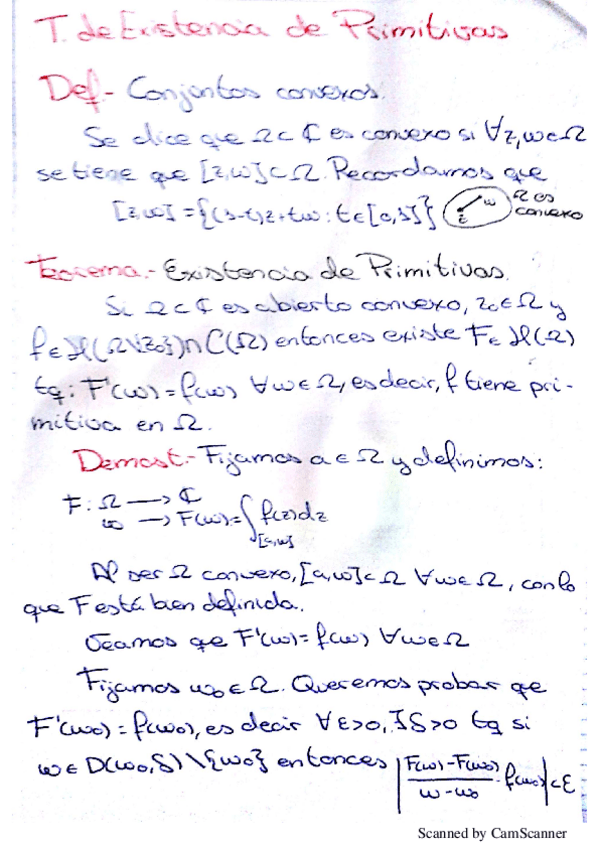 T. de Existencia de Primitivas
Def.- Conjuntos convexos.
Se dice que Ω⊂ℂ es convexo si ∀z,w∈Ω
se tiene que [z,w]⊂Ω. Recordamos que
[z,w]={(1-t)z+tw: t∈[0,1]} z w Ω es
convexo
Teorema.- Existencia de Primitivas.
Si Ω⊂ℂ es abierto convexo, z₀∈Ω y
f∈ℋ(Ω\{z₀})∩C(Ω) entonces existe F∈ℋ(Ω)
tq: F'(w)=f(w) ∀w∈Ω, es decir, f tiene pri-
mitiva en Ω.
Demost.- Fijamos a∈Ω y definimos:
F: Ω ⟶ ℂ
w ⟶ F(w)=∫_[a,w] f(z)dz
Al ser Ω convexo, [a,w]⊂Ω ∀w∈Ω, con lo
que F está bien definida.
Veamos que F'(w)=f(w) ∀w∈Ω
Fijamos w₀∈Ω. Queremos probar que
F'(w₀)=f(w₀), es decir ∀ε>0, ∃δ>0 tq si
w∈D(w₀,δ)\{w₀} entonces |(F(w)-F(w₀))/(w-w₀) - f(w₀)|<ε
Scanned by CamScanner